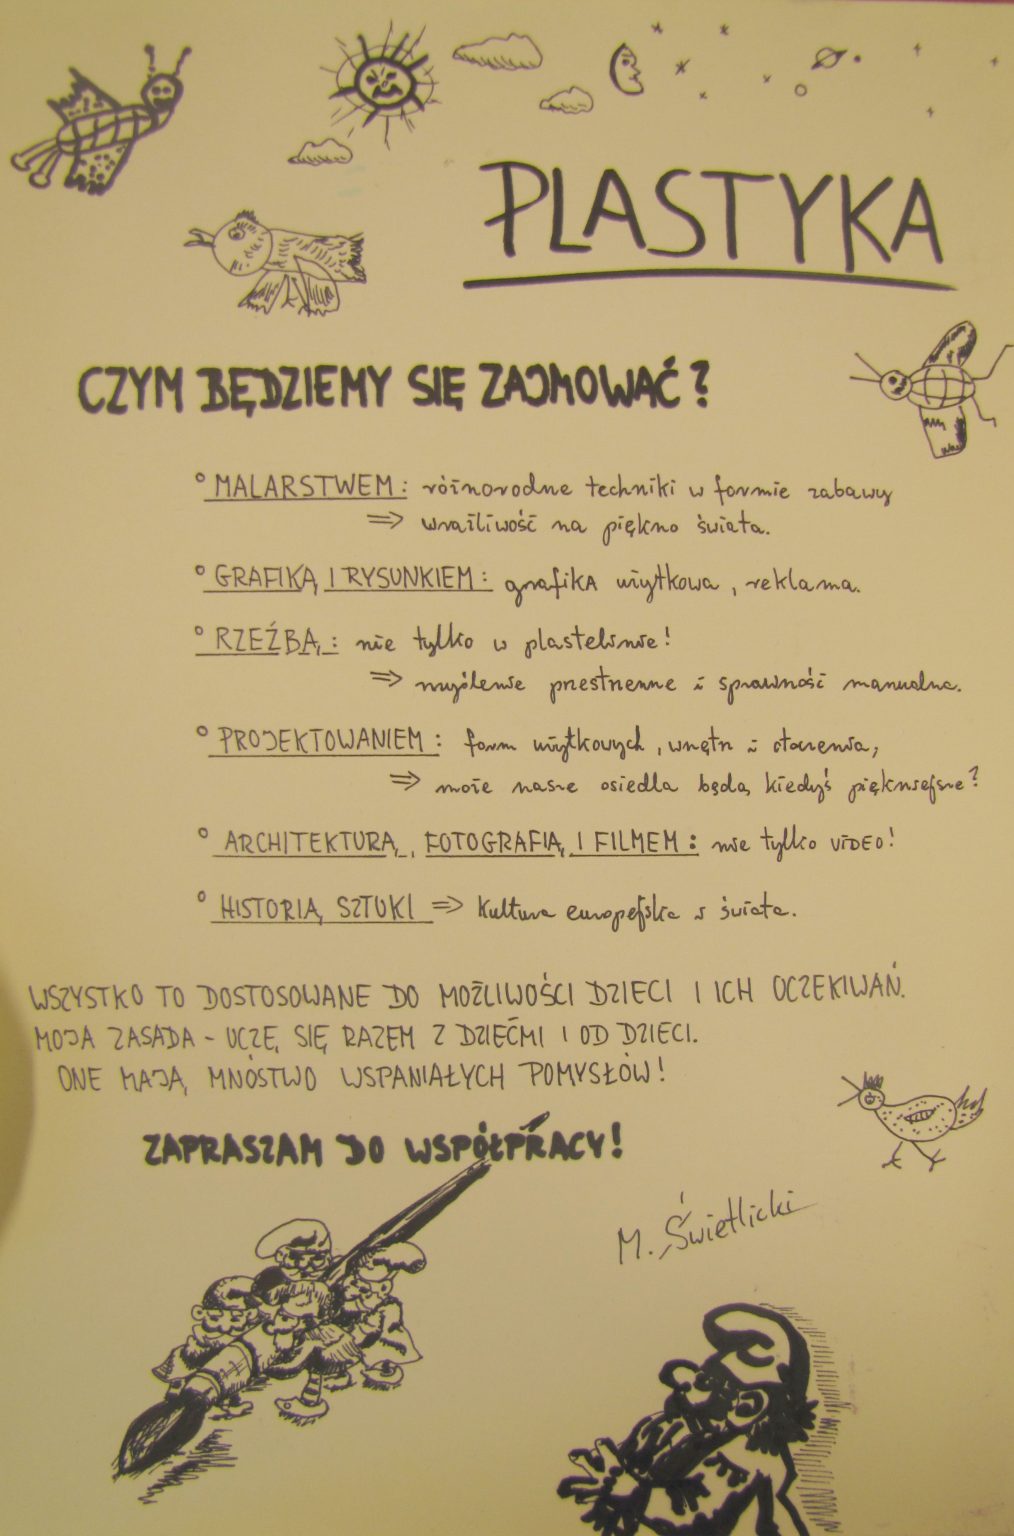 PLASTYKA
CZYM BĘDZIEMY SIĘ ZAJMOWAĆ?
° MALARSTWEM: różnorodne techniki w formie zabawy
⇒ wrażliwość na piękno świata.
° GRAFIKĄ I RYSUNKIEM: grafika użytkowa, reklama.
° RZEŹBĄ: nie tylko w plastelinie!
⇒ myślenie przestrzenne i sprawność manualna.
° PROJEKTOWANIEM: form użytkowych, wnętrz i otoczenia,
⇒ może nasze osiedla będą kiedyś piękniejsze?
° ARCHITEKTURĄ, FOTOGRAFIĄ I FILMEM: nie tylko VIDEO!
° HISTORIĄ SZTUKI ⇒ kultura europejska i świata.
WSZYSTKO TO DOSTOSOWANE DO MOŻLIWOŚCI DZIECI I ICH OCZEKIWAŃ.
MOJA ZASADA - UCZĘ SIĘ RAZEM Z DZIEĆMI I OD DZIECI.
ONE MAJĄ MNÓSTWO WSPANIAŁYCH POMYSŁÓW!
ZAPRASZAM DO WSPÓŁPRACY!
M. Świetlicki